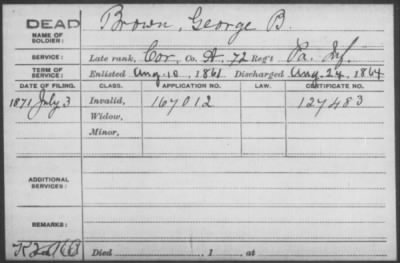 DEAD
NAME OF SOLDIER: Brown, George B.
SERVICE: Late rank, Cor, Co. A. 72 Reg't Pa. Inf.
TERM OF SERVICE: Enlisted Aug. 10, 1861 Discharged Aug. 24, 1864
DATE OF FILING. CLASS. APPLICATION NO. LAW. CERTIFICATE NO.
1871 July 3 Invalid, 167012 127483
Widow,
Minor,
ADDITIONAL SERVICES:
REMARKS:
Died , 1 , at